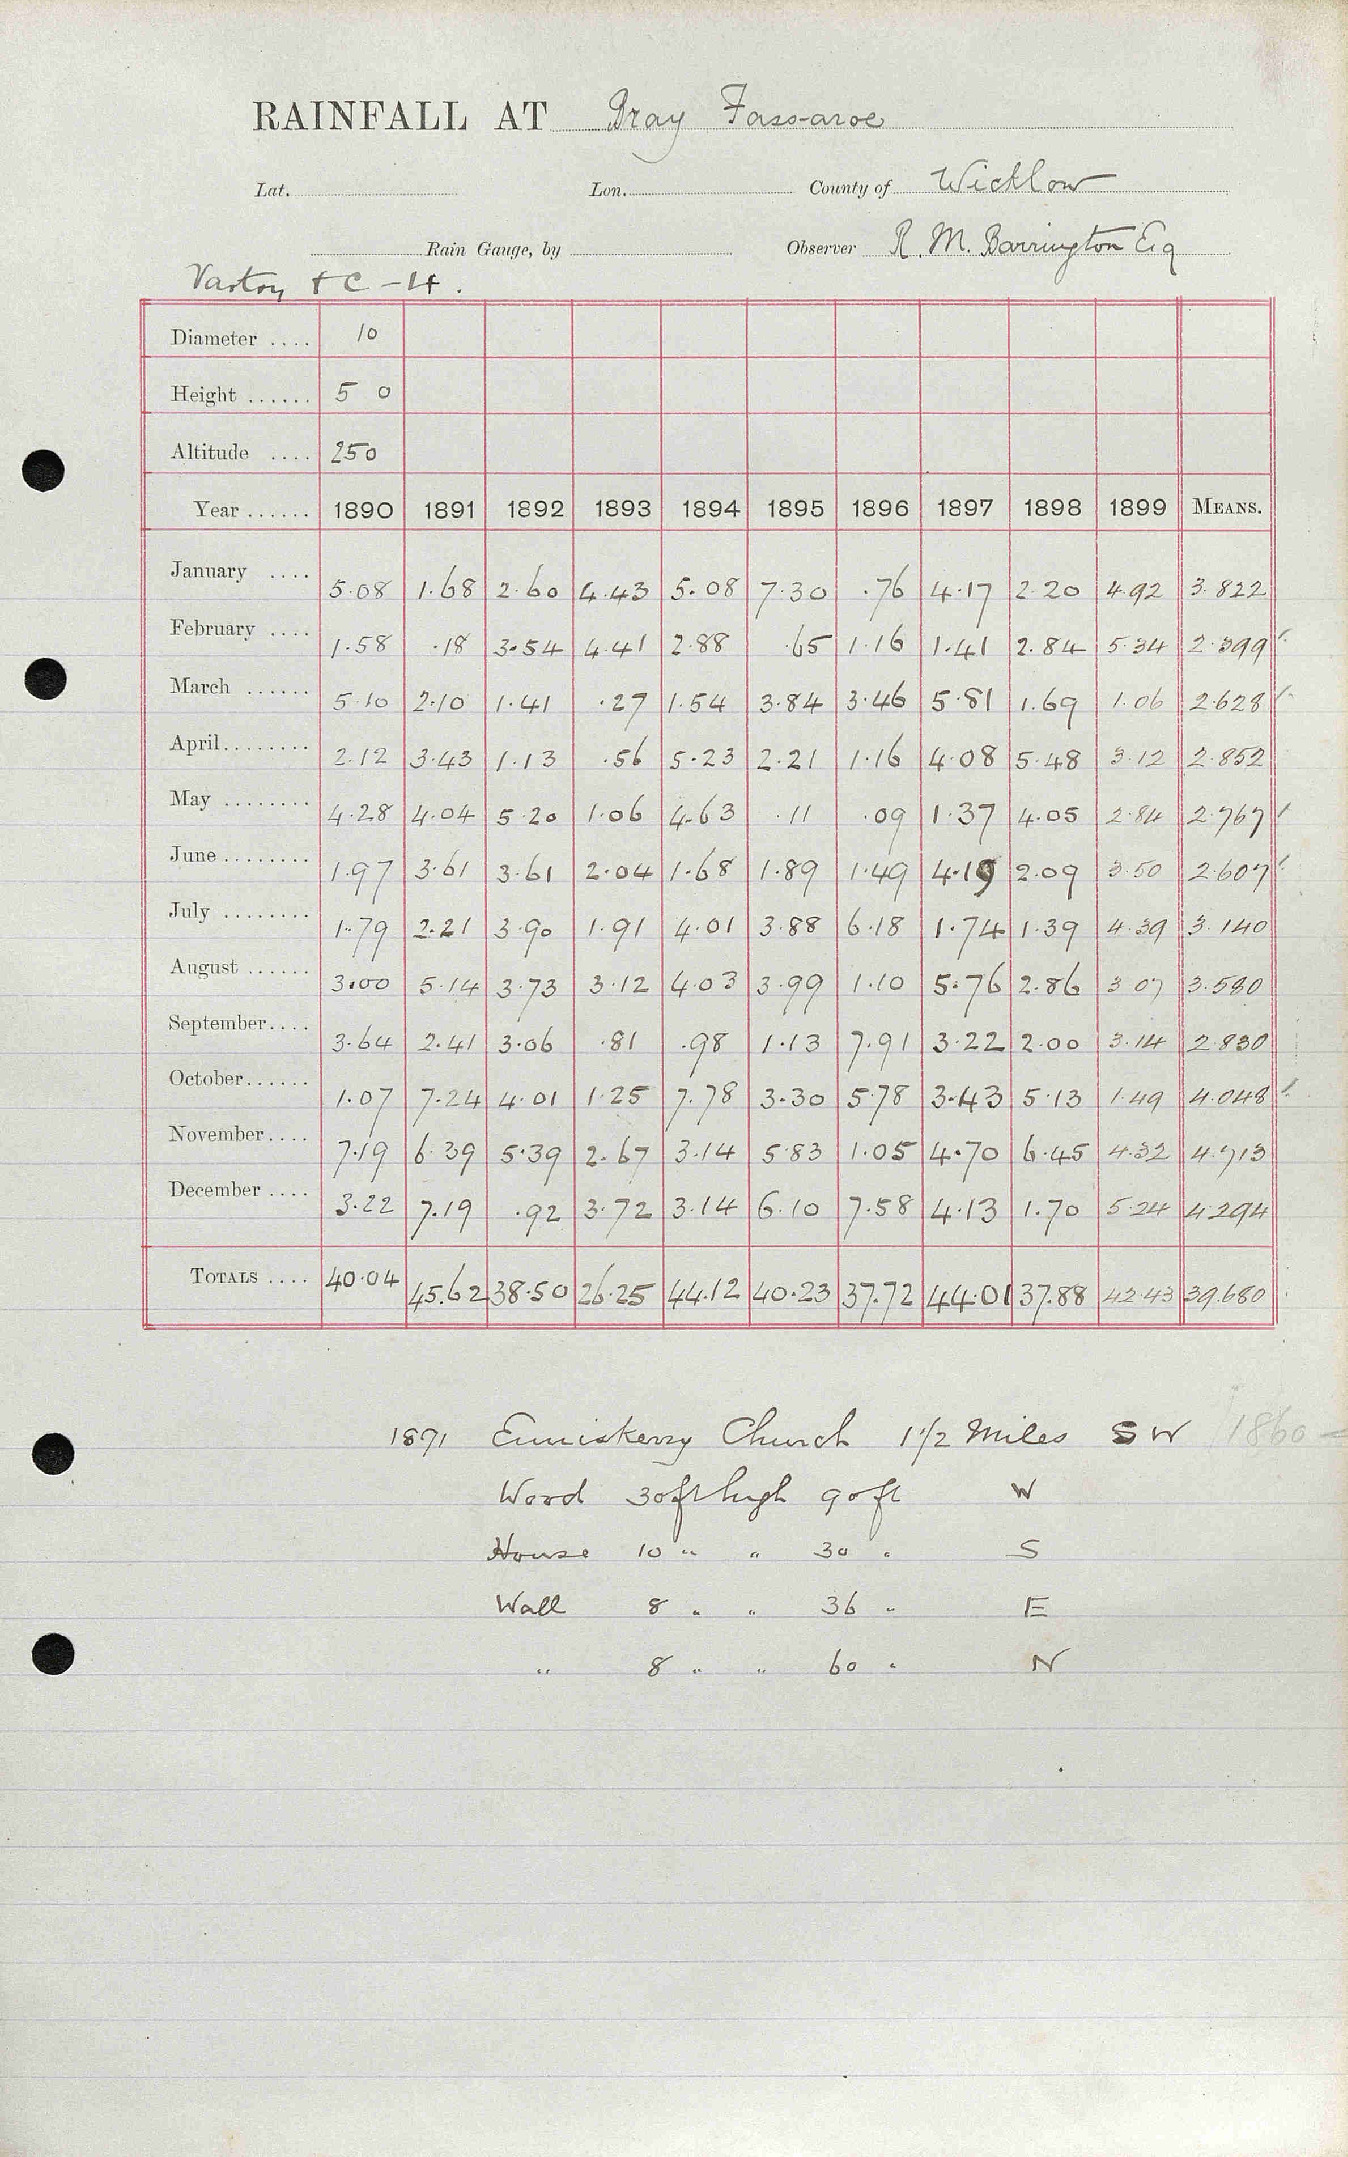 RAINFALL AT Bray Fassaroe
Lat. Lon. County of Wicklow
Rain Gauge, by Observer R. M. Barrington Esq
Vartry + C - 4.
Diameter .... 10
Height ...... 5 0
Altitude .... 250
Year ...... 1890 1891 1892 1893 1894 1895 1896 1897 1898 1899 MEANS.
January .... 5.08 1.68 2.60 4.43 5.08 7.30 .76 4.17 2.20 4.92 3.822
February .... 1.58 .18 3.54 4.41 2.88 .65 1.16 1.41 2.84 5.34 2.399
March ...... 5.10 2.10 1.41 .27 1.54 3.84 3.46 5.81 1.69 1.06 2.628
April........ 2.12 3.43 1.13 .56 5.23 2.21 1.16 4.08 5.48 3.12 2.852
May ........ 4.28 4.04 5.20 1.06 4.63 .11 .09 1.37 4.05 2.84 2.767
June ........ 1.97 3.61 3.61 2.04 1.68 1.89 1.49 4.19 2.09 3.50 2.607
July ........ 1.79 2.21 3.90 1.91 4.01 3.88 6.18 1.74 1.39 4.39 3.140
August ...... 3.00 5.14 3.73 3.12 4.03 3.99 1.10 5.76 2.86 3.07 3.580
September.... 3.64 2.41 3.06 .81 .98 1.13 7.91 3.22 2.00 3.14 2.830
October...... 1.07 7.24 4.01 1.25 7.78 3.30 5.78 3.43 5.13 1.49 4.048
November.... 7.19 6.39 5.39 2.67 3.14 5.83 1.05 4.70 6.45 4.32 4.713
December .... 3.22 7.19 .92 3.72 3.14 6.10 7.58 4.13 1.70 5.24 4.294
TOTALS .... 40.04 45.62 38.50 26.25 44.12 40.23 37.72 44.01 37.88 42.43 39.680
1871 Enniskerry Church 1 1/2 Miles SW 1860 -
Wood 30ft high 90ft W
House 10 " " 30 " S
Wall 8 " " 36 " E
" 8 " " 60 " N